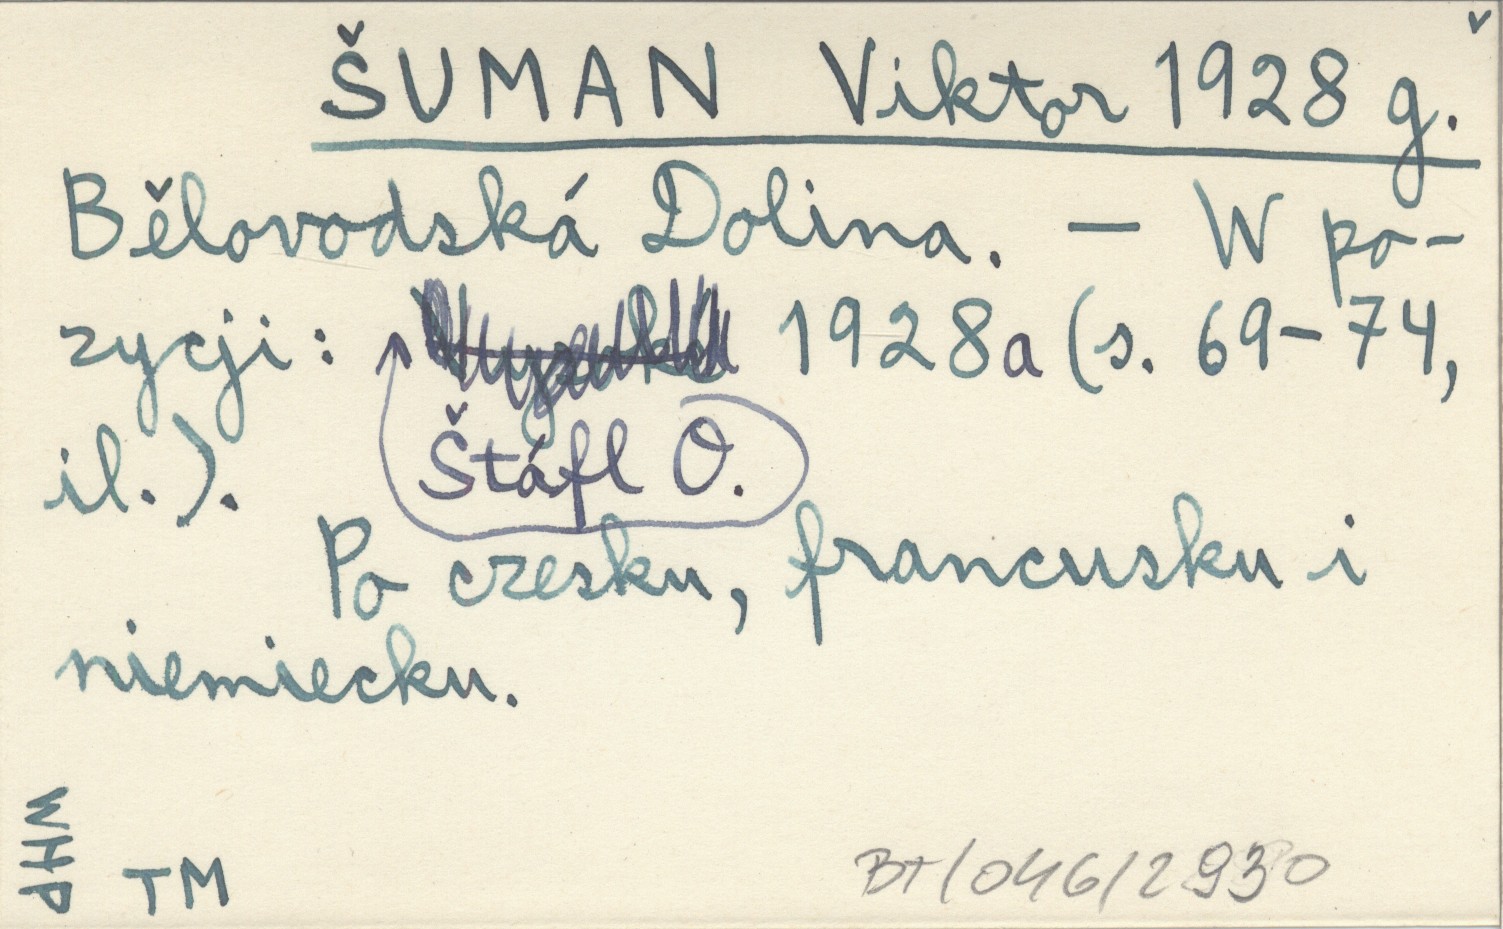 ŠUMAN Viktor 1928 g.
Bělovodská Dolina. — W po-
zycji: 1928a (s. 69-74,
il.). Štáfl O.
Po czesku, francusku i
niemiecku.
WHP
TM
BT/046/2930